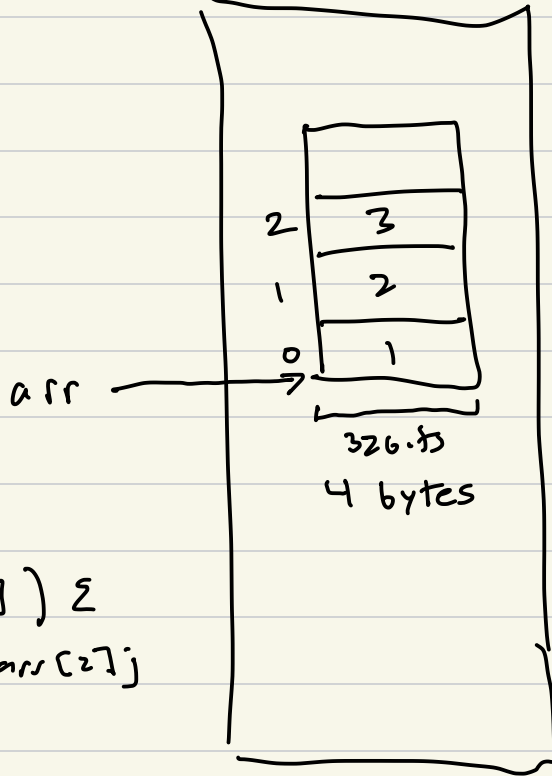 2 3
1 2
0 1
arr
32 bits
4 bytes
) {
arr[2];